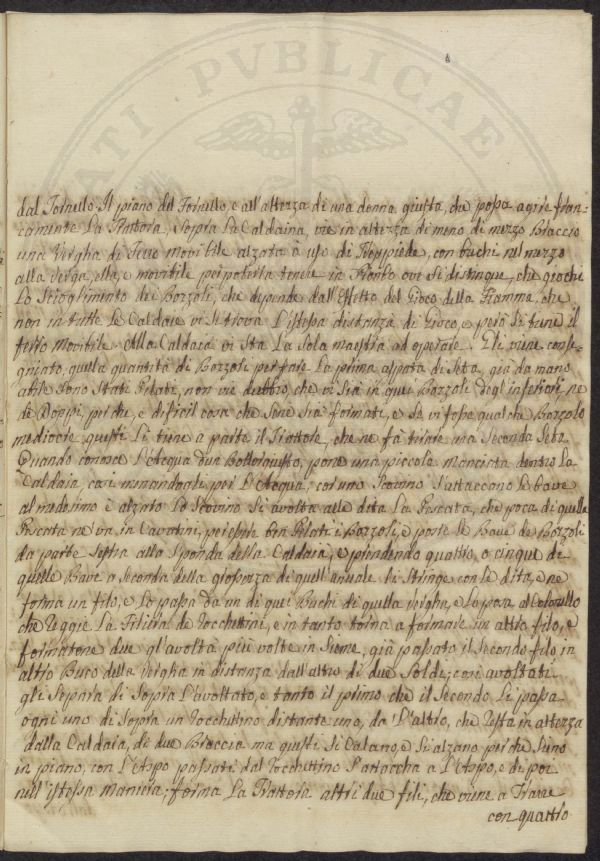 ATI PVBLICAE
dal Fornello. Il piano del Fornello, e all'altezza di una donna giusta, che possa agire fran-
camente La Trattora, Sopra La Caldaina, vie in altezza di meno di mezzo Braccio
una Vergha di Ferro movibile alzata à uso di Treppiede, con buchi nel mezzo
alla verga, ella, e movibile per poterla tenere in Pionbo ove Si distingue, che giochi
Lo Scioglimento dei Bozzoli, che depende dall'Effetto del Gioco della Fiamma, che
non in tutte Le Caldaie vi Si trova L'istessa distanza di Gioco, e però Si tiene il
ferro movibile. Alla Caldaia vi Sta La Sola maestra ad operare. Gli viene conse-
gniato, quella quantità di Bozzoli per fare La prima aspata di Seta, già da mano
abile Sono Stati Pelati, non vie dubbio, che vi Sia in quei Bozzoli degl'inferiori, ne
de Doppi, perche, e dificil cosa che Sene Sia formati, e Se vi fosse qualche Bozzolo
mediocre, questi Li tiene a parte il Trattore, che ne fà tirare una Seconda Seta
Quando conosce L'Acqua d'un Bollor giusto, pone una piccola manciata dentro La
Caldaia così menandogli per L'Acqua, con uno Scovino S'attaccono Le bave
al medesimo e alzato Lo Scovino Si avolta alle dita La Pescata, che poca di quella
Pescata ne va in Cavatini, perche Ben Pelati i Bozzoli, e poste Le Bave de Bozzoli
da parte Sopra alla Sponda della Caldaia, e prendendo quattro, o cinque di
quelle Bave a Seconda della grossezza di quell'annuale. Le Stringe con le dita, e ne
forma un filo, e Lo passa da un di quei Buchi di quella Vergha, e La posa al
che Reggie La Filiera de Rocchettini, e in tanto torna a formare un altro filo, e
formatone due gl'avolta più volte in Sieme, già passato il Secondo filo in
altro Buco della Vergha in distanza dall'altro di due Soldi; così avoltati
gli Separa di Sopra L'avoltato, e tanto il primo che il Secondo Li passa
ogni uno di Sopra un Rocchettino distante uno, da L'altro, che Resta in altezza
dalla Caldaia, di due Braccia ma questi Si Calano, e Si alzano perche Sieno
in piano, con L'Aspo passati dal Rocchettino S'attaccha a L'Aspo, e di poi
nell'istessa maniera; forma La Trattora altri due fili, che viene a Trarre
con quattro